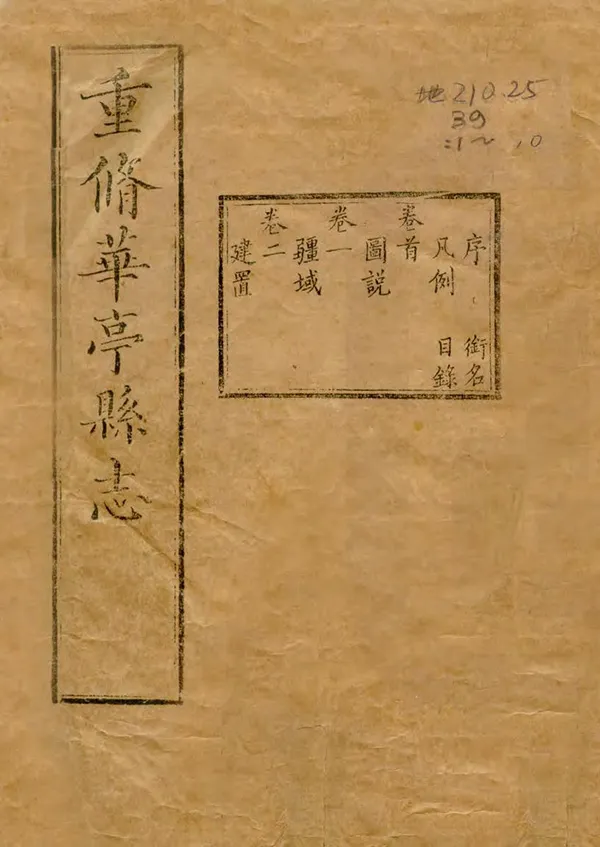 地210.25
39
:1~10
序 銜名
凡例 目錄
卷首
圖說
卷一
疆域
卷二
建置
重脩華亭縣志